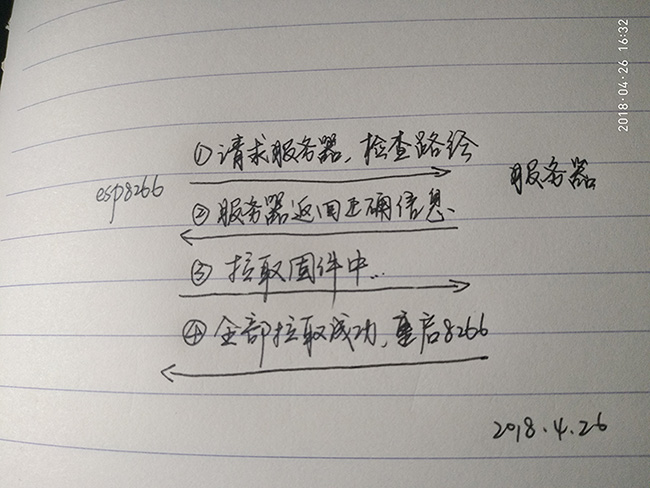 2018.04.26 16:32
①请求服务器,检查路径
esp8266
服务器
②服务器返回正确信息.
③拉取固件中...
④全部拉取成功,重启8266
2018.4.26